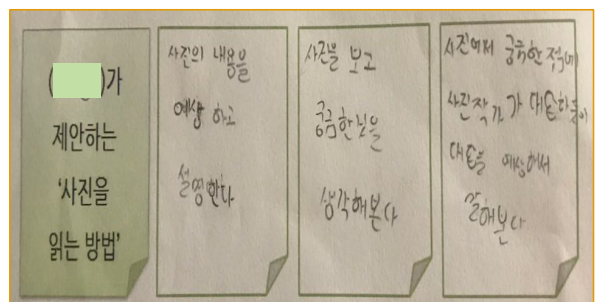 ( )가
제안하는
'사진을
읽는 방법'
사진의 내용을
예상 하고
설명한다
사진을 보고
궁금한것을
생각해본다
사진에서 궁금한 점에
사진작가가 대답하듯이
대답을 예상해서
말해본다